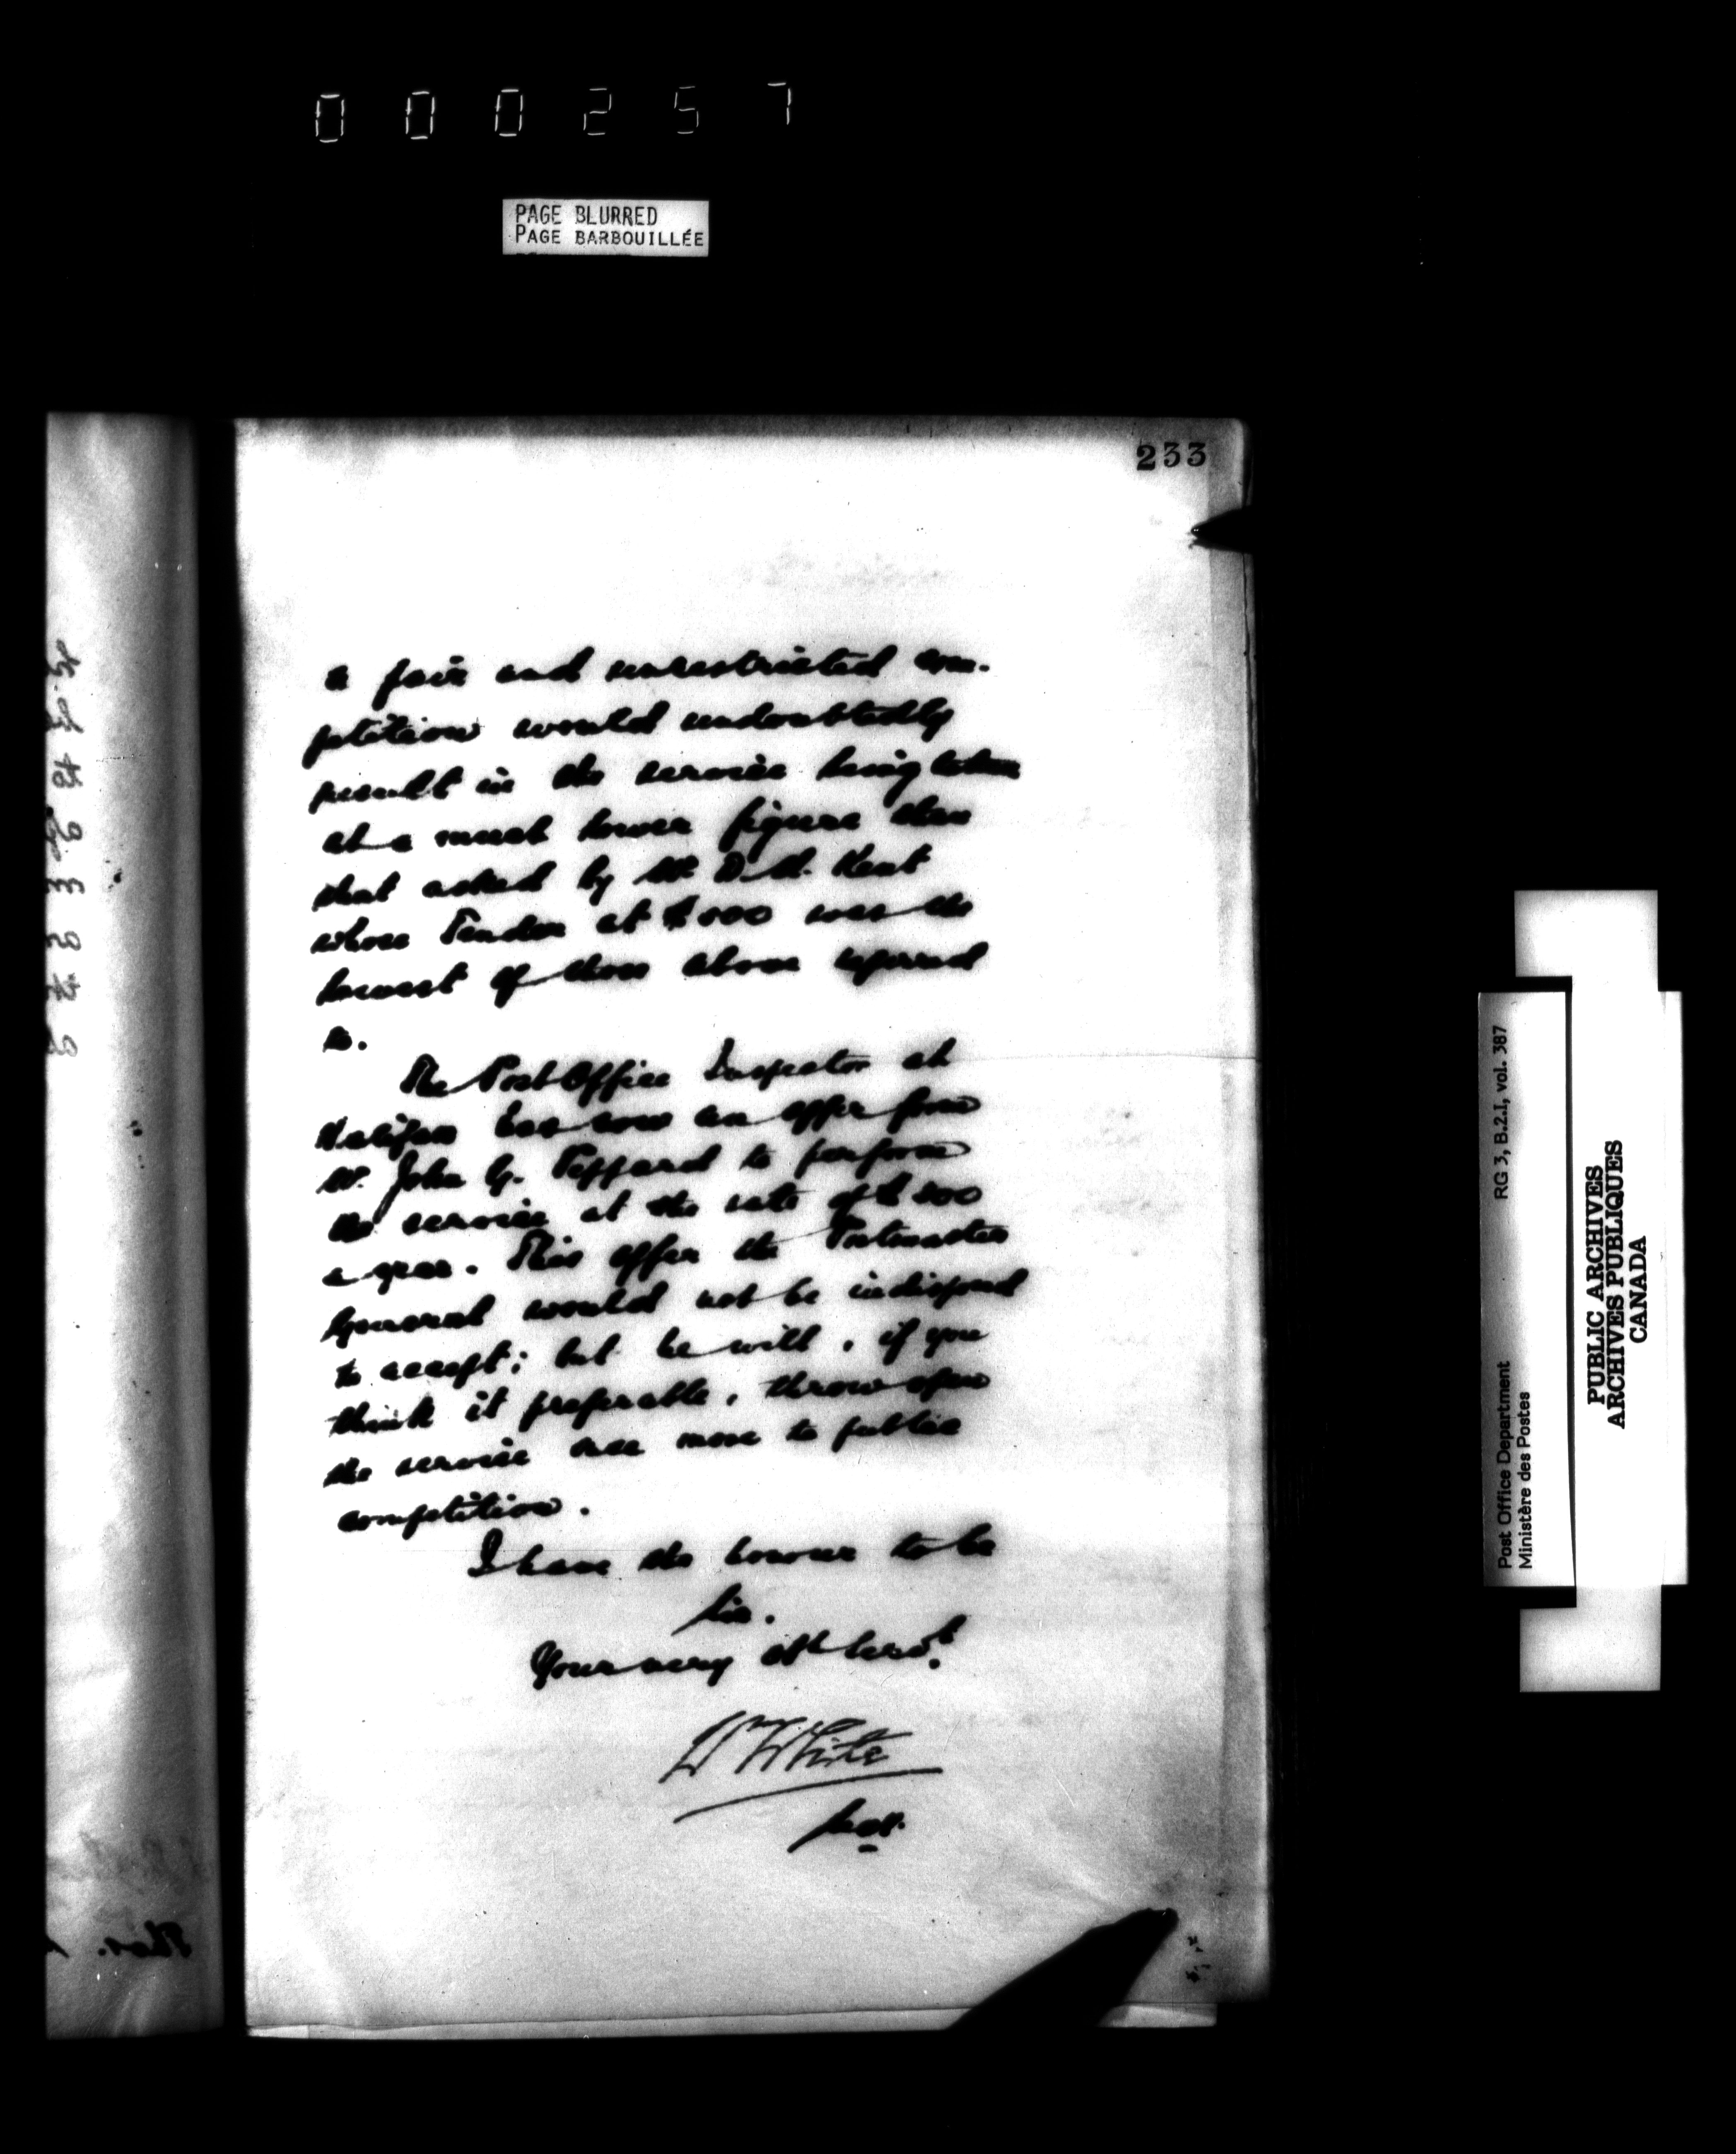 000257
PAGE BLURRED
PAGE BARBOUILLÉE
233
a fair and unrestricted com-
petition would undoubtedly
result in the service being taken
at a much lower figure than
that asked by Mr. D. M. Kent
whose Tender at $800 was the
lowest of those above referred
to.
The Post Office Inspector at
Halifax has now an offer from
Mr. John G. Peppard to perform
the service at the rate of $
a year. This offer the Postmaster
General would not be indisposed
to accept; but he will, if you
think it preferable, throw open
the service once more to public
competition.
I have the honour to be
Sir.
Your very obt servt.
Wm White
Secy.
Thos.
RG 3, B.2.1, vol. 387
Post Office Department
Ministère des Postes
PUBLIC ARCHIVES
ARCHIVES PUBLIQUES
CANADA